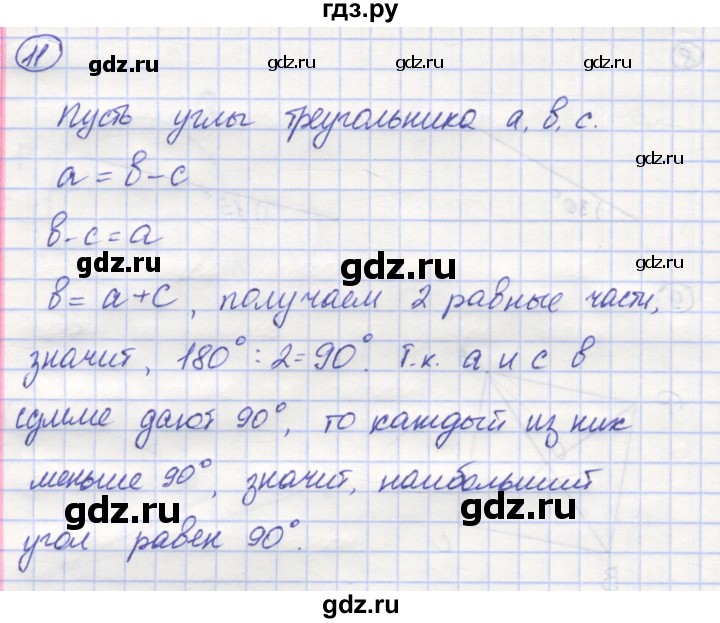 гдз.ру
11
gdz.ru gdz.ru gdz.ru
Пусть углы треугольника а, в, с.
gdz.ru
а = в – с
в – с = а
gdz.ru gdz.ru gdz.ru
в = а + с, получаем 2 равные части,
значит, 180° : 2 = 90°. Т.к. а и с в
gdz.ru gdz.ru gdz.ru
сумме дают 90°, то каждый из них
меньше 90°, значит, наибольший
gdz.ru gdz.ru gdz.ru
угол равен 90°.
gdz.ru